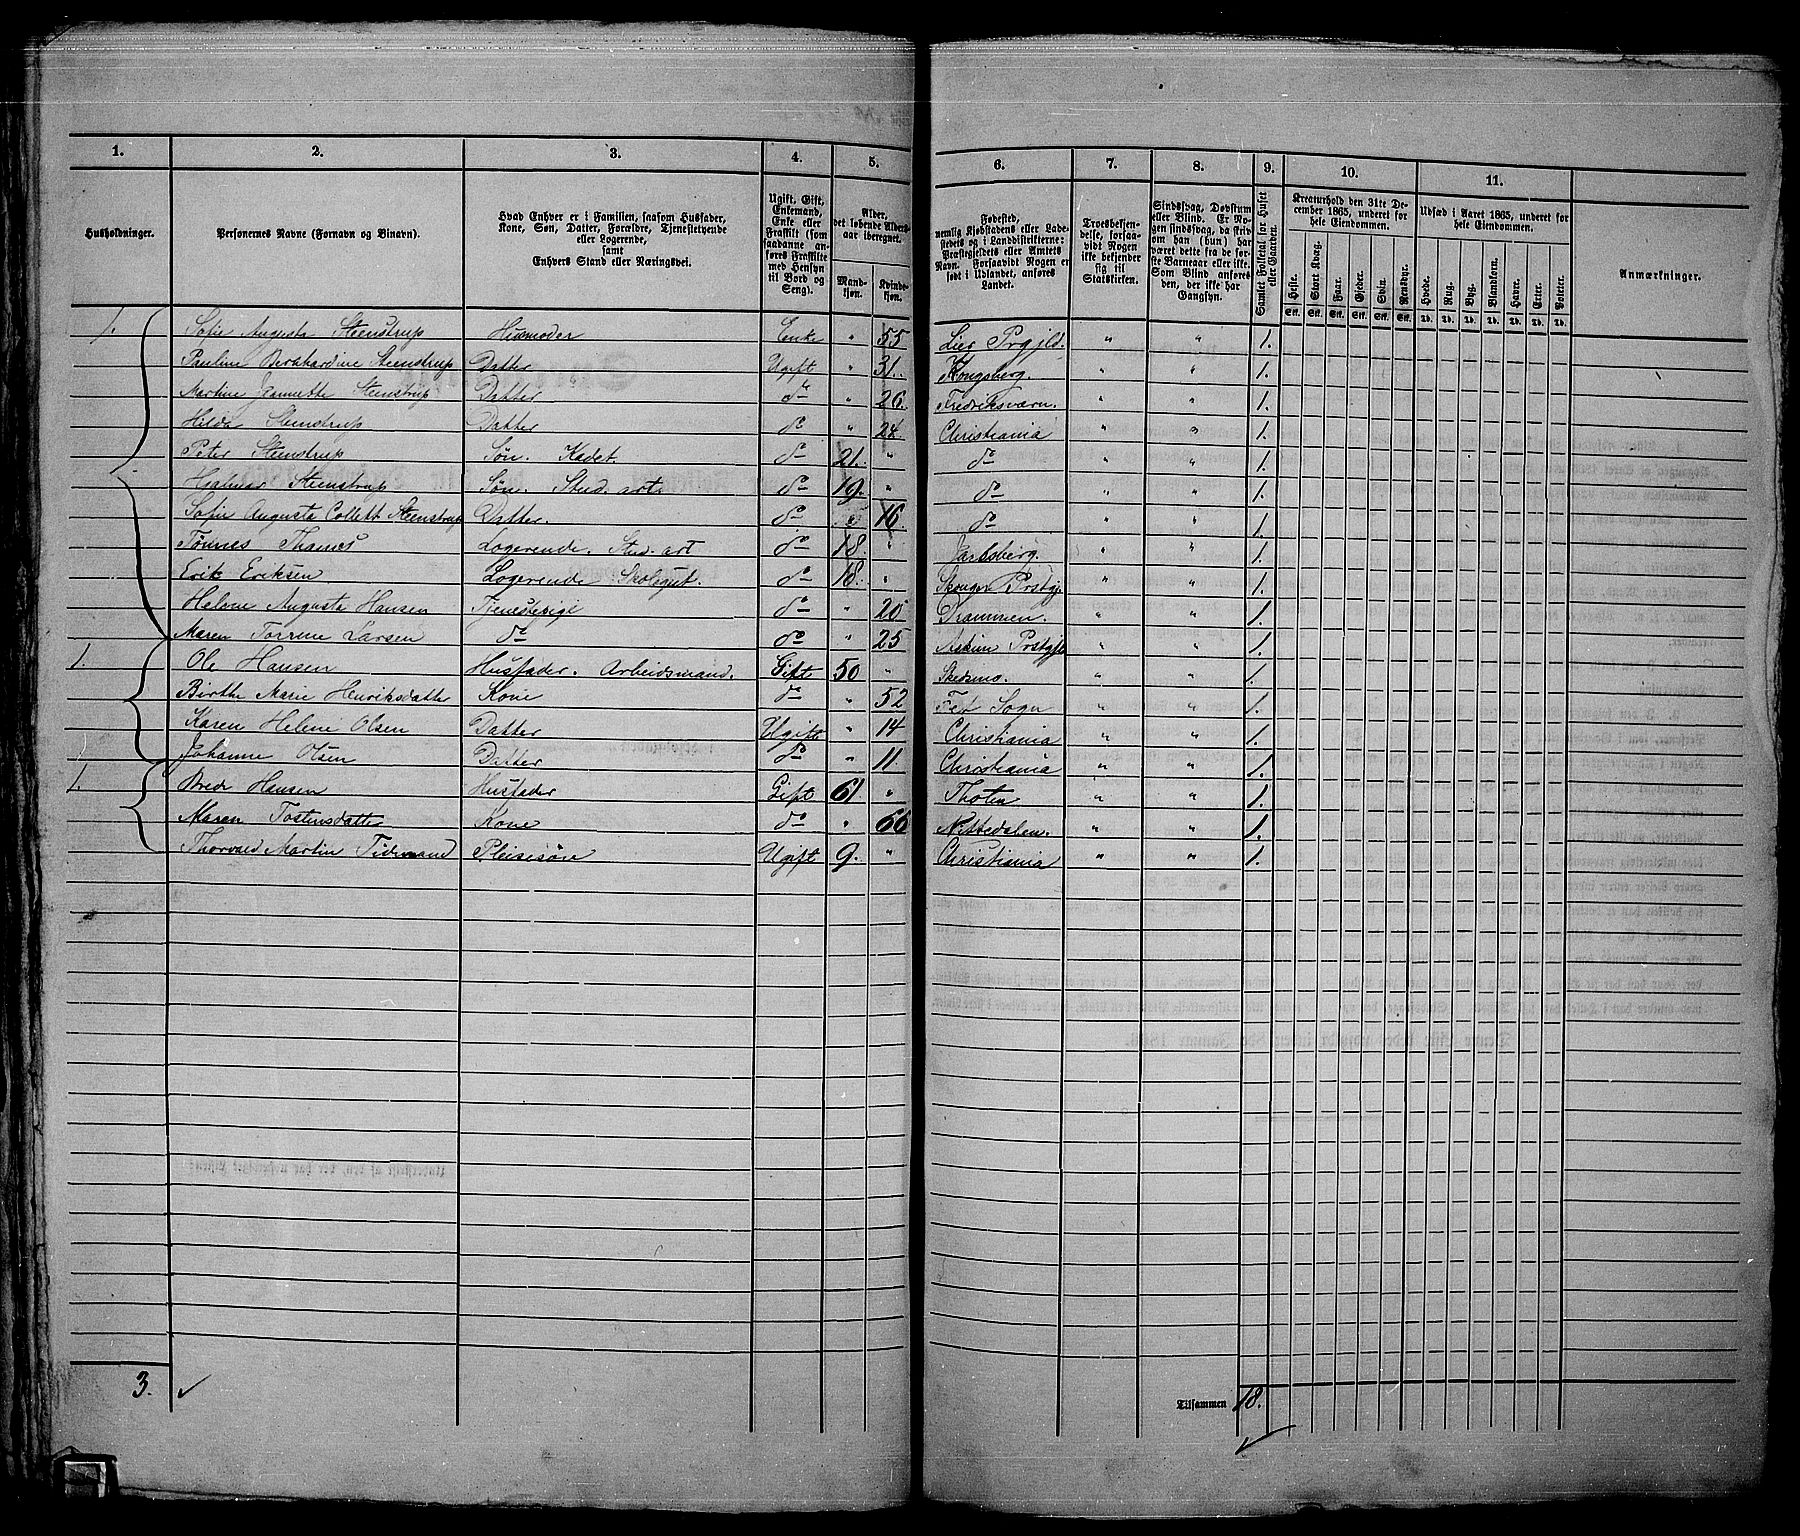 1. 2. 3. 4. 5. 6. 7. 8. 9. 10. 11.
Husholdninger.
Personernes Navne (Fornavn og Binavn).
Hvad Enhver er i Familien, saasom Husfader, Kone, Søn, Datter, Forældre, Tjenestetyende eller Logerende, samt Enhvers Stand eller Næringsvei.
Ugift, Gift, Enkemand, Enke eller Fraskilt (som saadanne anføres Fraskilte med Hensyn til Bord og Seng).
Alder, det løbende Aldersaar iberegnet.
Mandkjøn. Kvindekjøn.
Fødested, nemlig Kjøbstadens eller Ladestedets og i Landdistrikterne: Præstegjeldets eller Amtets Navn. Forsaavidt Nogen er født i Udlandet, anføres Landet.
Troesbekjendelse, forsaavidt Nogen ikke bekjender sig til Statskirken.
Sindssvag, Døvstum eller Blind. Er Nogen sindssvag, da skrives om han (hun) har været dette fra de første Barneaar eller ikke. Som Blind anføres den, der ikke har Gangsyn.
Samlet Folketal for Huset eller Gaarden.
Kreaturhold den 31te December 1865, underet for hele Eiendommen.
Heste. Stort Kvæg. Faar. Gjeder. Svin. Rensdyr.
Stk. Stk. Stk. Stk. Stk. Stk.
Udsæd i Aaret 1865, underet for hele Eiendommen.
Hvede. Rug. Byg. Blandkorn. Havre. Erter. Poteter.
Td. Td. Td. Td. Td. Td. Td.
Anmærkninger.
1. Sofie Augusta Steenstrup Husmoder Enke " 55 Lier Prgjld. " " 1.
Pauline Bernhardine Steenstrup Datter Ugift " 31. Kongsberg. " " 1.
Martine Jeannette Steenstrup Datter do " 26. Fredriksværn. " " 1.
Hilda Steenstrup Datter do " 24. Christiania " " 1.
Peter Steenstrup Søn. Kadet. do 21. " do " " 1.
Hjalmar Steenstrup Søn. Stud. art. do 19. " do " " 1.
Sofie Augusta Collett Steenstrup Datter. do " 16. do " " 1.
Tønnes Logerende. Stud. art do 18. " Jarlsberg. " " 1.
Erik Eriksen Logerende Skolegut. do 18. " Skouger Prstgj. " " 1.
Helene Augusta Hansen Tjenestepige do " 20 Drammen. " " 1.
Maren Larsen do do " 25 Askim Prstgj. " " 1.
1. Ole Hansen Husfader. Arbeidsmand. Gift 50 " Skedsmo. " " 1.
Birthe Marie Henriksdatter Kone do " 52 Fet Sogn " " 1.
Karen Helene Olsen Datter Ugift " 14 Christiania " " 1.
Johanne Olsen Datter do " 11. Christiania " " 1.
1. Brede Hansen Husfader Gift 61. " Thoten " " 1.
Maren Tostensdatter Kone do " 66 Nittedalen. " " 1.
Thorvald Martin Tidemand Pleiesøn Ugift 9. " Christiania " " 1.
3. ✓ Tilsammen 18.